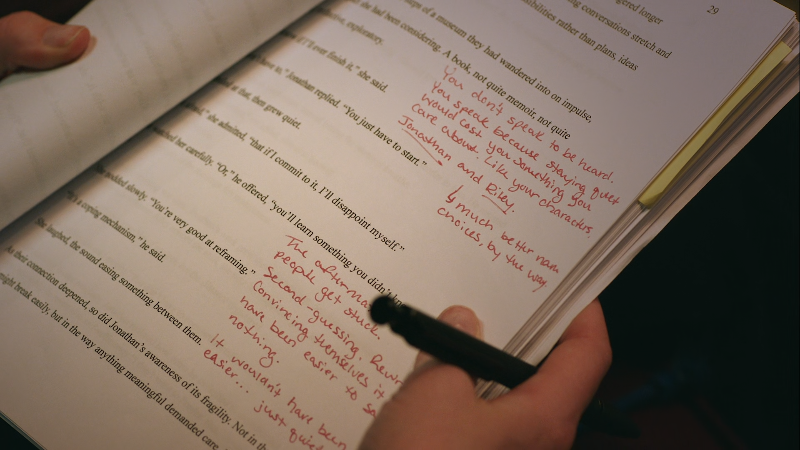 29
ngered longer
ng conversations stretch and
sibilities rather than plans, ideas
eps of a museum they had wandered into on impulse,
she had been considering. A book, not quite memoir, not quite
exploratory.
if I'll ever finish it," she said.
to," Jonathan replied. "You just have to start."
at that, then grew quiet.
she admitted, "that if I commit to it, I'll disappoint myself."
her carefully. "Or," he offered, "you'll learn something you didn't
nodded slowly. "You're very good at reframing."
a coping mechanism," he said.
She laughed, the sound easing something between them.
As their connection deepened, so did Jonathan's awareness of its fragility. Not in th
might break easily, but in the way anything meaningful demanded care.
You don't speak to be heard.
You speak because staying quiet
would cost you something you
care about. Like your characters,
Jonathan and Riley.
↳ much better nam
choices, by the way
The aftermat
people get stuck.
Second guessing. Rewr
Convincing themselves it
have been easier to sa
nothing
It wouldn't have been
easier... just quiet